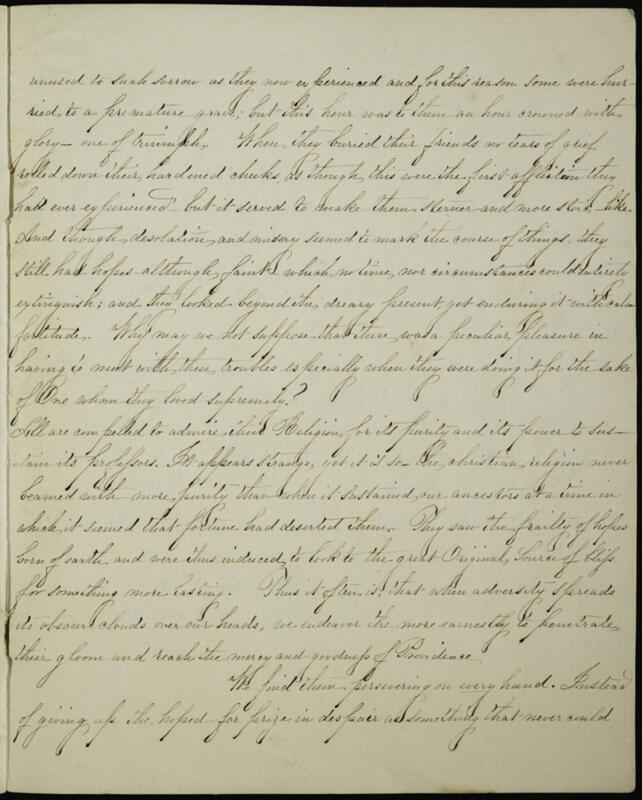 unused to such sorrow as they now experienced and for this reason some were hur-
ried to a premature grave; but this hour was to them an hour crowned with
glory – one of triumph. When they buried their friends no tears of grief
rolled down their hardened cheeks, as though this were the first affliction they
had ever experienced – but it served to make them sterner and more stoic-like.
And though desolation and misery seemed to mark the course of things, they
still had hopes although faint which no time, nor circumstances could entirely
extinguish; and they looked beyond the dreary present, yet enduring it with calm
fortitude. Why may we not suppose that there was a peculiar pleasure in
having to meet with these troubles especially when they were doing it for the sake
of One whom they loved supremely?
All are compelled to admire their Religion for its purity and its power to sus-
tain its professors. It appears strange, yet it is so – the christian religion never
beamed with more purity than when it sustained our ancestors at a time in
which it seemed that fortune had deserted them. They saw the frailty of hopes
born of earth and were thus induced to look to the great Original Source of bliss
for something more lasting. Thus it often is, that when adversity spreads
its obscure clouds over our heads, we endeavor the more earnestly to penetrate
their gloom and reach the mercy and goodness of Providence
We find them persevering on every hand. Instead
of giving up the hoped for prize in despair as something that never could